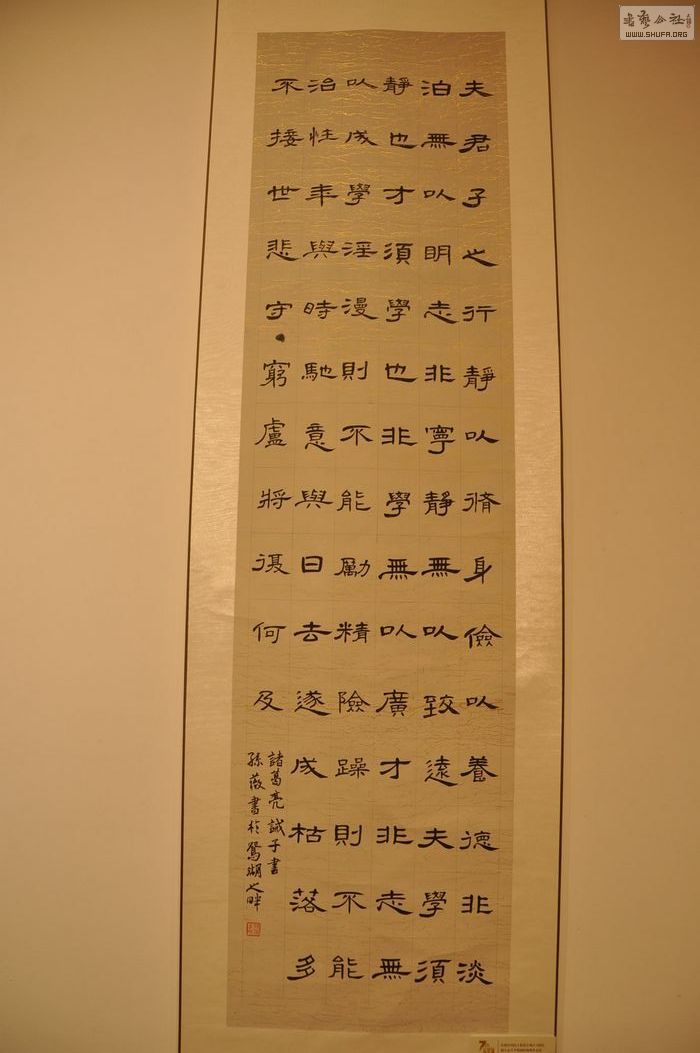 夫君子之行靜以脩身儉以養德非淡
泊無以明志非寧靜無以致遠夫學須
靜也才須學也非學無以廣才非志無
以成學淫漫則不能勵精險躁則不能
治性年與時馳意與日去遂成枯落多
不接世悲守窮盧將復何及
諸葛亮誡子書
孫薇書於鴛湖之畔
书艺公社
WWW.SHUFA.ORG